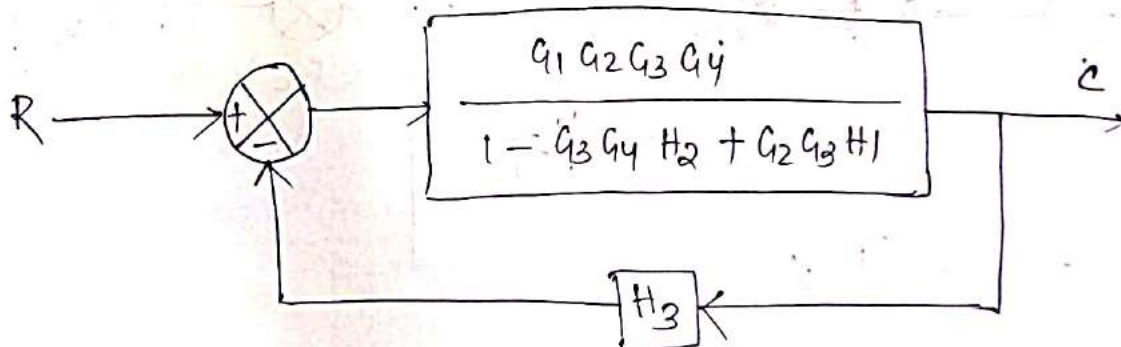 G1 G2 G3 G4
R + C
1 - G3 G4 H2 + G2 G3 H1
-
H3